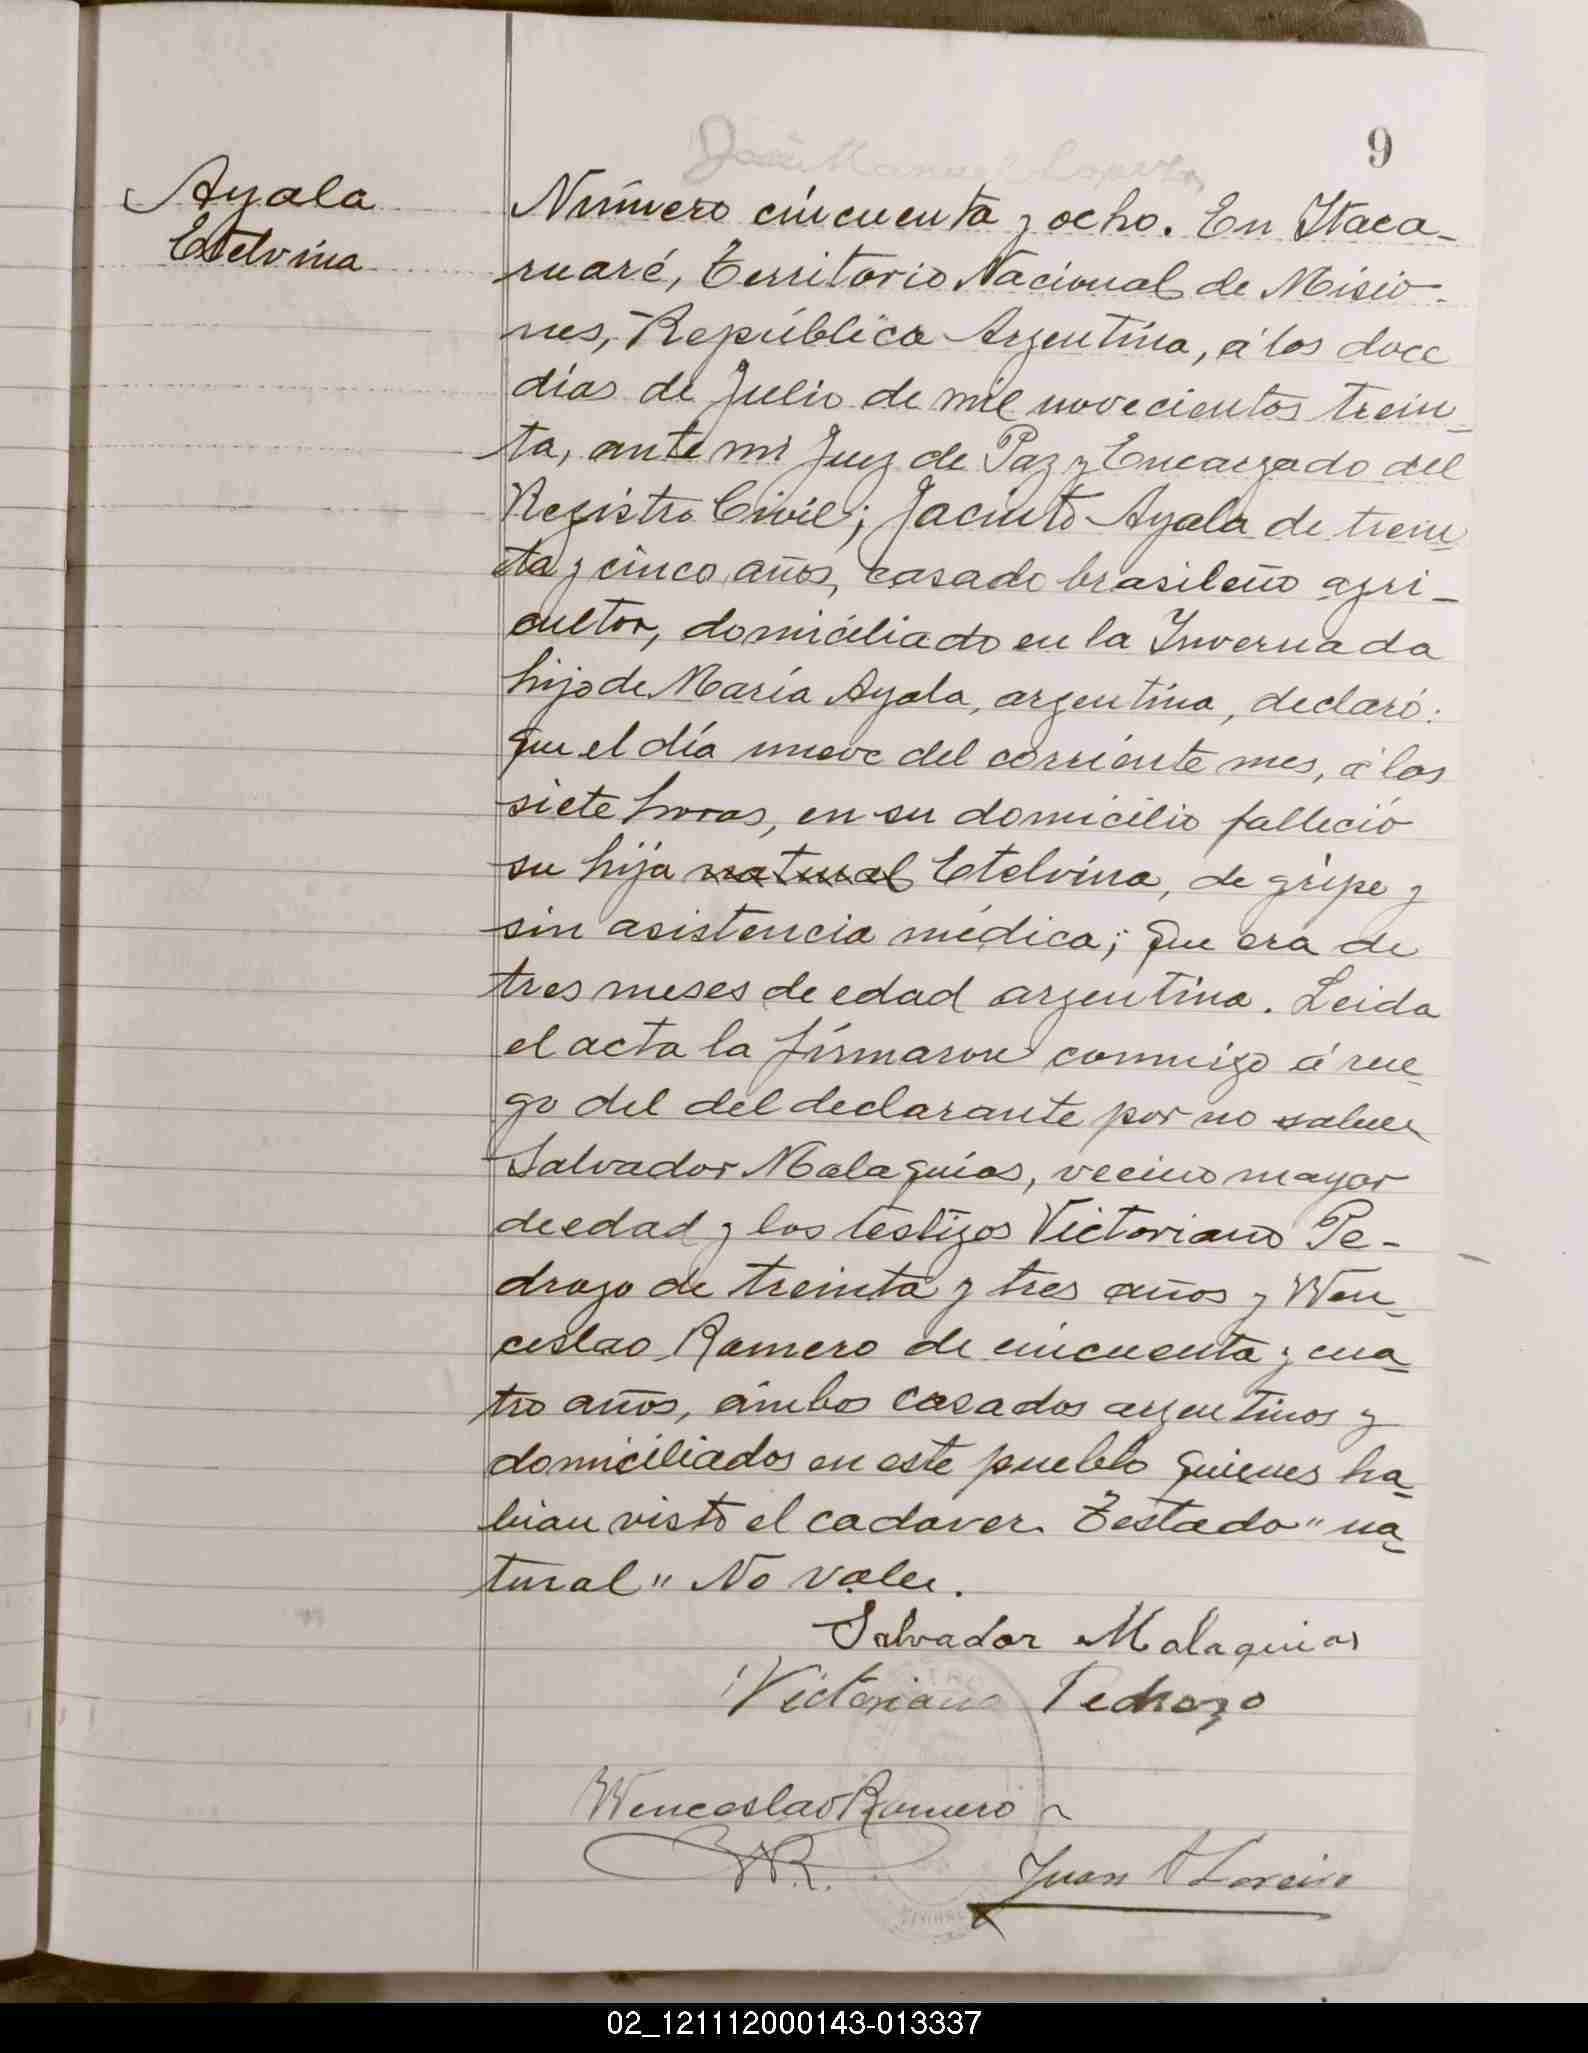 9
Ayala
Etelvina
Número cincuenta y ocho. En Itaca-
ruaré, Territorio Nacional de Misio-
nes, República Argentina, á los doce
días de Julio de mil novecientos trein-
ta, ante mi Juez de Paz y Encargado del
Registro Civil; Jacinto Ayala de trein-
ta y cinco años, casado brasileño agri-
cultor, domiciliado en la Invernada
hijo de María Ayala, argentina, declaró:
que el día nueve del corriente mes, á las
siete horas, en su domicilio falleció
su hija natural Etelvina, de gripe y
sin asistencia médica; que era de
tres meses de edad argentina. Leida
el acta la firmaron conmigo á rue-
go del del declarante por no saber
Salvador Malaquias, vecino mayor
de edad y los testigos Victoriano Pe-
drozo de treinta y tres años y Wen-
ceslao Romero de cincuenta y cua-
tro años, ámbos casados argentinos y
domiciliados en este pueblo quienes ha-
bian visto el cadaver. Testado "na-
tural" No vale.
Salvador Malaquias
Victoriano Pedrozo
Wenceslao Romero
W.R.
Juan
02_121112000143-013337